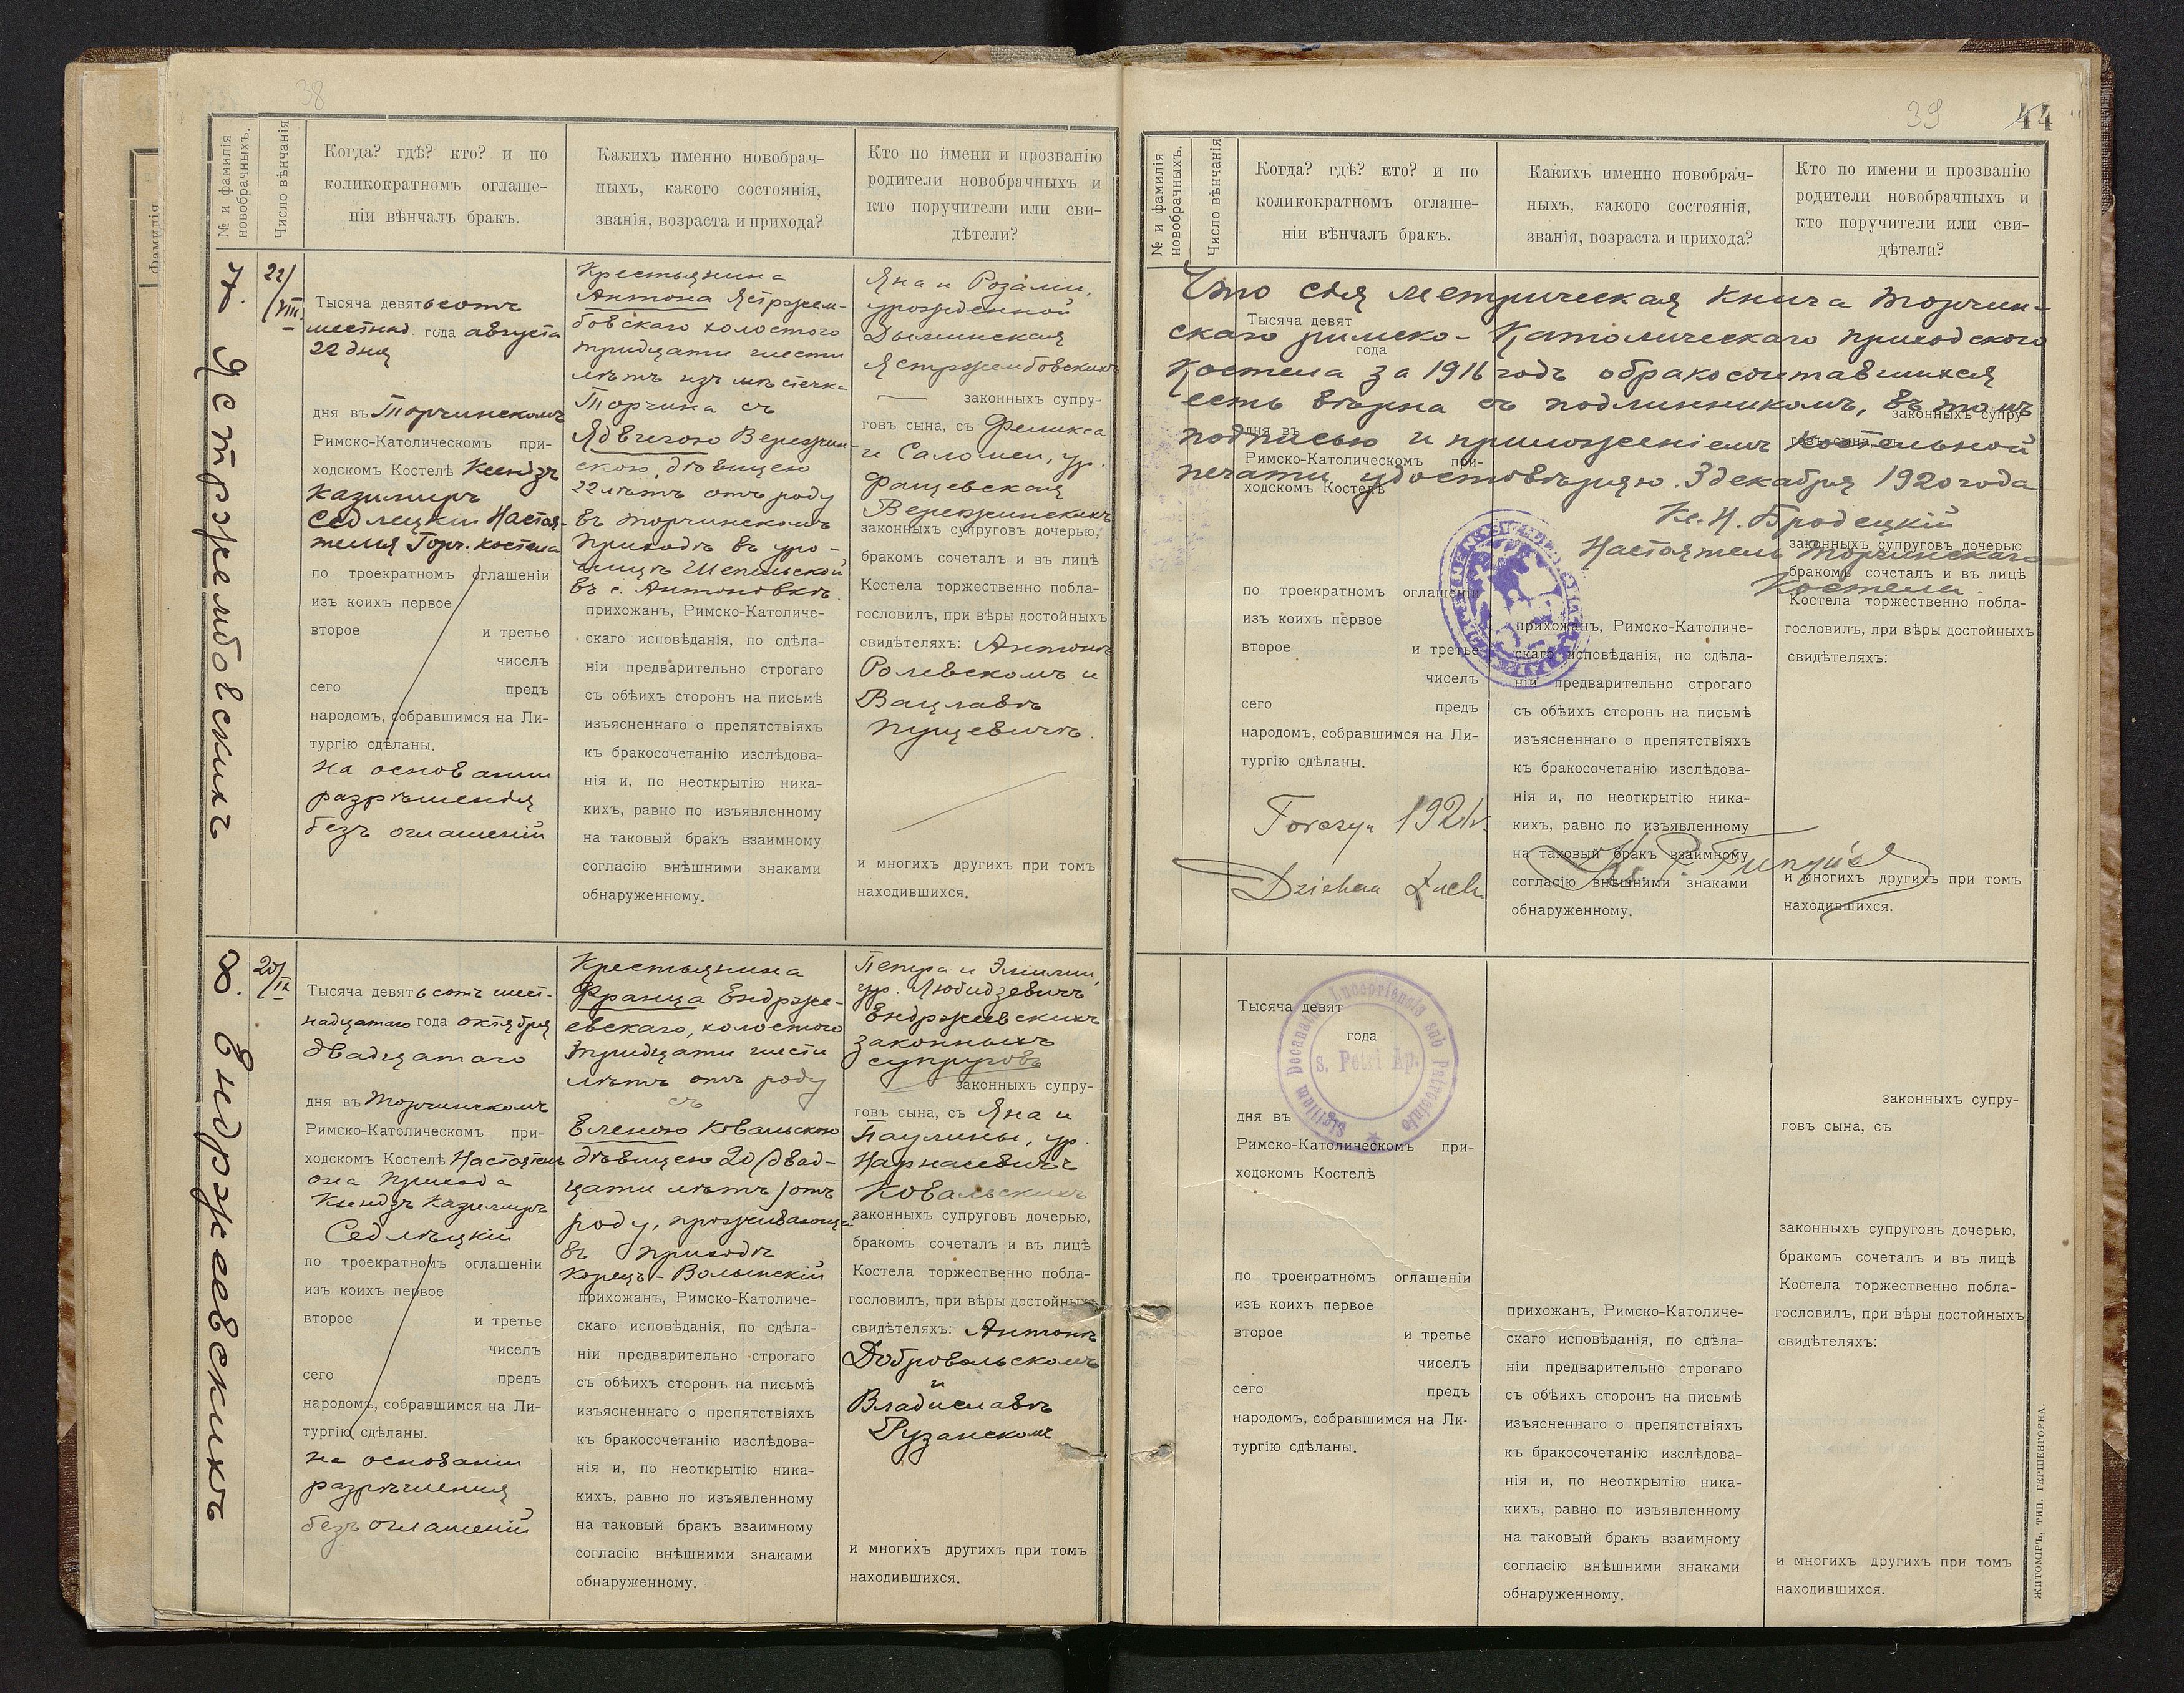 38
№ и фамилія новобрачныхъ.
Число вѣнчанія
Когда? гдѣ? кто? и по
коликократномъ оглаше-
ніи вѣнчалъ бракъ.
Какихъ именно новобрач-
ныхъ, какого состоянія,
званія, возраста и прихода?
Кто по имени и прозванію
родители новобрачныхъ и
кто поручители или сви-
дѣтели?
7. Ястржембовскихъ
22/VIII
Тысяча девятьсотъ
шестнад. года августа
22 дня
дня въ Торчинскомъ
Римско-Католическомъ при-
ходскомъ Костелѣ Ксендзъ
Казимиръ
Седлецкій Настоя-
тель Торч. костела
по троекратномъ оглашеніи
изъ коихъ первое
второе и третье
чиселъ
сего предъ
народомъ, собравшимся на Ли-
тургію сдѣланы.
на основаніи
разрѣшенія
безъ оглашеній
Крестьянина
Антона Ястржем-
бовскаго холостого
тридцати шести
лѣтъ изъ мѣстечка
Торчина съ
Ядвигою Вережин-
скою, дѣвицею
22 лѣтъ отъ роду
въ Торчинскомъ
приходѣ въ уро-
чищѣ Шепельской
въ с. Антоновкѣ.
прихожанъ, Римско-Католиче-
скаго исповѣданія, по сдѣла-
ніи предварительно строгаго
съ обѣихъ сторонъ на письмѣ
изъясненнаго о препятствіяхъ
къ бракосочетанію изслѣдова-
нія и, по неоткрытію ника-
кихъ, равно по изъявленному
на таковый бракъ взаимному
согласію внѣшними знаками
обнаруженному.
Яна и Розаліи,
урожденной
Ястржембовскихъ
законныхъ супру-
говъ сына, съ Феликса
и Саломеи, ур.
Фащевская
Вережинскихъ
законныхъ супруговъ дочерью,
бракомъ сочеталъ и въ лицѣ
Костела торжественно побла-
гословилъ, при вѣры достойныхъ
свидѣтеляхъ: Антонѣ
Ролевскомъ и
Вацлавѣ
Пуцевичѣ.
и многихъ другихъ при томъ
находившихся.
8. Ендржеевскихъ
20/IX
Тысяча девятьсотъ шест-
надцатаго года октября
двадцатаго
дня въ Торчинскомъ
Римско-Католическомъ при-
ходскомъ Костелѣ Настоятель
она прихода
Ксендзъ Казимиръ
Седлѣцкій
по троекратномъ оглашеніи
изъ коихъ первое
второе и третье
чиселъ
сего предъ
народомъ, собравшимся на Ли-
тургію сдѣланы.
на основаніи
разрѣшенія
безъ оглашеній
Крестьянина
Франца Ендрже-
евскаго, холостого
тридцати шести
лѣтъ отъ роду
съ
Еленою Ковальскою
дѣвицею 20 (двад-
цати лѣтъ) отъ
роду, проживающей
въ приходѣ
Корецъ-Волынскій
прихожанъ, Римско-Католиче-
скаго исповѣданія, по сдѣла-
ніи предварительно строгаго
съ обѣихъ сторонъ на письмѣ
изъясненнаго о препятствіяхъ
къ бракосочетанію изслѣдова-
нія и, по неоткрытію ника-
кихъ, равно по изъявленному
на таковый бракъ взаимному
согласію внѣшними знаками
обнаруженному.
Петра и Эмиліи,
ур. Любидзевичъ
Ендржеевскихъ
законныхъ
супруговъ
законныхъ супру-
говъ сына, съ Яна и
Паулины, ур.
Ковальскихъ
законныхъ супруговъ дочерью,
бракомъ сочеталъ и въ лицѣ
Костела торжественно побла-
гословилъ, при вѣры достойныхъ
свидѣтеляхъ: Антонѣ
Добровольскомъ
и
Владиславѣ
Рузанскомъ
и многихъ другихъ при томъ
находившихся.
39
44
№ и фамилія новобрачныхъ.
Число вѣнчанія
Когда? гдѣ? кто? и по
коликократномъ оглаше-
ніи вѣнчалъ бракъ.
Какихъ именно новобрач-
ныхъ, какого состоянія,
званія, возраста и прихода?
Кто по имени и прозванію
родители новобрачныхъ и
кто поручители или сви-
дѣтели?
Что сія метрическая книга Торчин-
скаго римско-Католическаго приходского
Костела за 1916 годъ о бракосочетавшихся
есть вѣрна съ подлинникомъ, въ томъ
подписью и приложеніемъ костельной
печати удостовѣряю. 3 декабря 1920 года
Кс. Н. Бродецкій
Настоятель Торчинскаго
Костела.
Тысяча девят
года
дня въ
Римско-Католическомъ при-
ходскомъ Костелѣ
по троекратномъ оглашеніи
изъ коихъ первое
второе и третье
чиселъ
сего предъ
народомъ, собравшимся на Ли-
тургію сдѣланы.
Torczyn 1921 r.
Dziekan Łuck.
прихожанъ, Римско-Католиче-
скаго исповѣданія, по сдѣла-
ніи предварительно строгаго
съ обѣихъ сторонъ на письмѣ
изъясненнаго о препятствіяхъ
къ бракосочетанію изслѣдова-
нія и, по неоткрытію ника-
кихъ, равно по изъявленному
на таковый бракъ взаимному
согласію внѣшними знаками
обнаруженному.
законныхъ супру-
говъ сына, съ
законныхъ супруговъ дочерью
бракомъ сочеталъ и въ лицѣ
Костела торжественно побла-
гословилъ, при вѣры достойныхъ
свидѣтеляхъ:
и многихъ другихъ при томъ
находившихся.
Sigillum Decanatus Luceoriensis sub Patrocinio
s. Petri Ap.
Тысяча девят
года
дня въ
Римско-Католическомъ при-
ходскомъ Костелѣ
по троекратномъ оглашеніи
изъ коихъ первое
второе и третье
чиселъ
сего предъ
народомъ, собравшимся на Ли-
тургію сдѣланы.
прихожанъ, Римско-Католиче-
скаго исповѣданія, по сдѣла-
ніи предварительно строгаго
съ обѣихъ сторонъ на письмѣ
изъясненнаго о препятствіяхъ
къ бракосочетанію изслѣдова-
нія и, по неоткрытію ника-
кихъ, равно по изъявленному
на таковый бракъ взаимному
согласію внѣшними знаками
обнаруженному.
законныхъ супру-
говъ сына, съ
законныхъ супруговъ дочерью,
бракомъ сочеталъ и въ лицѣ
Костела торжественно побла-
гословилъ, при вѣры достойныхъ
свидѣтеляхъ:
и многихъ другихъ при томъ
находившихся.
ЖИТОМІРЪ, ТИП. ГЕРШЕНГОРНА.